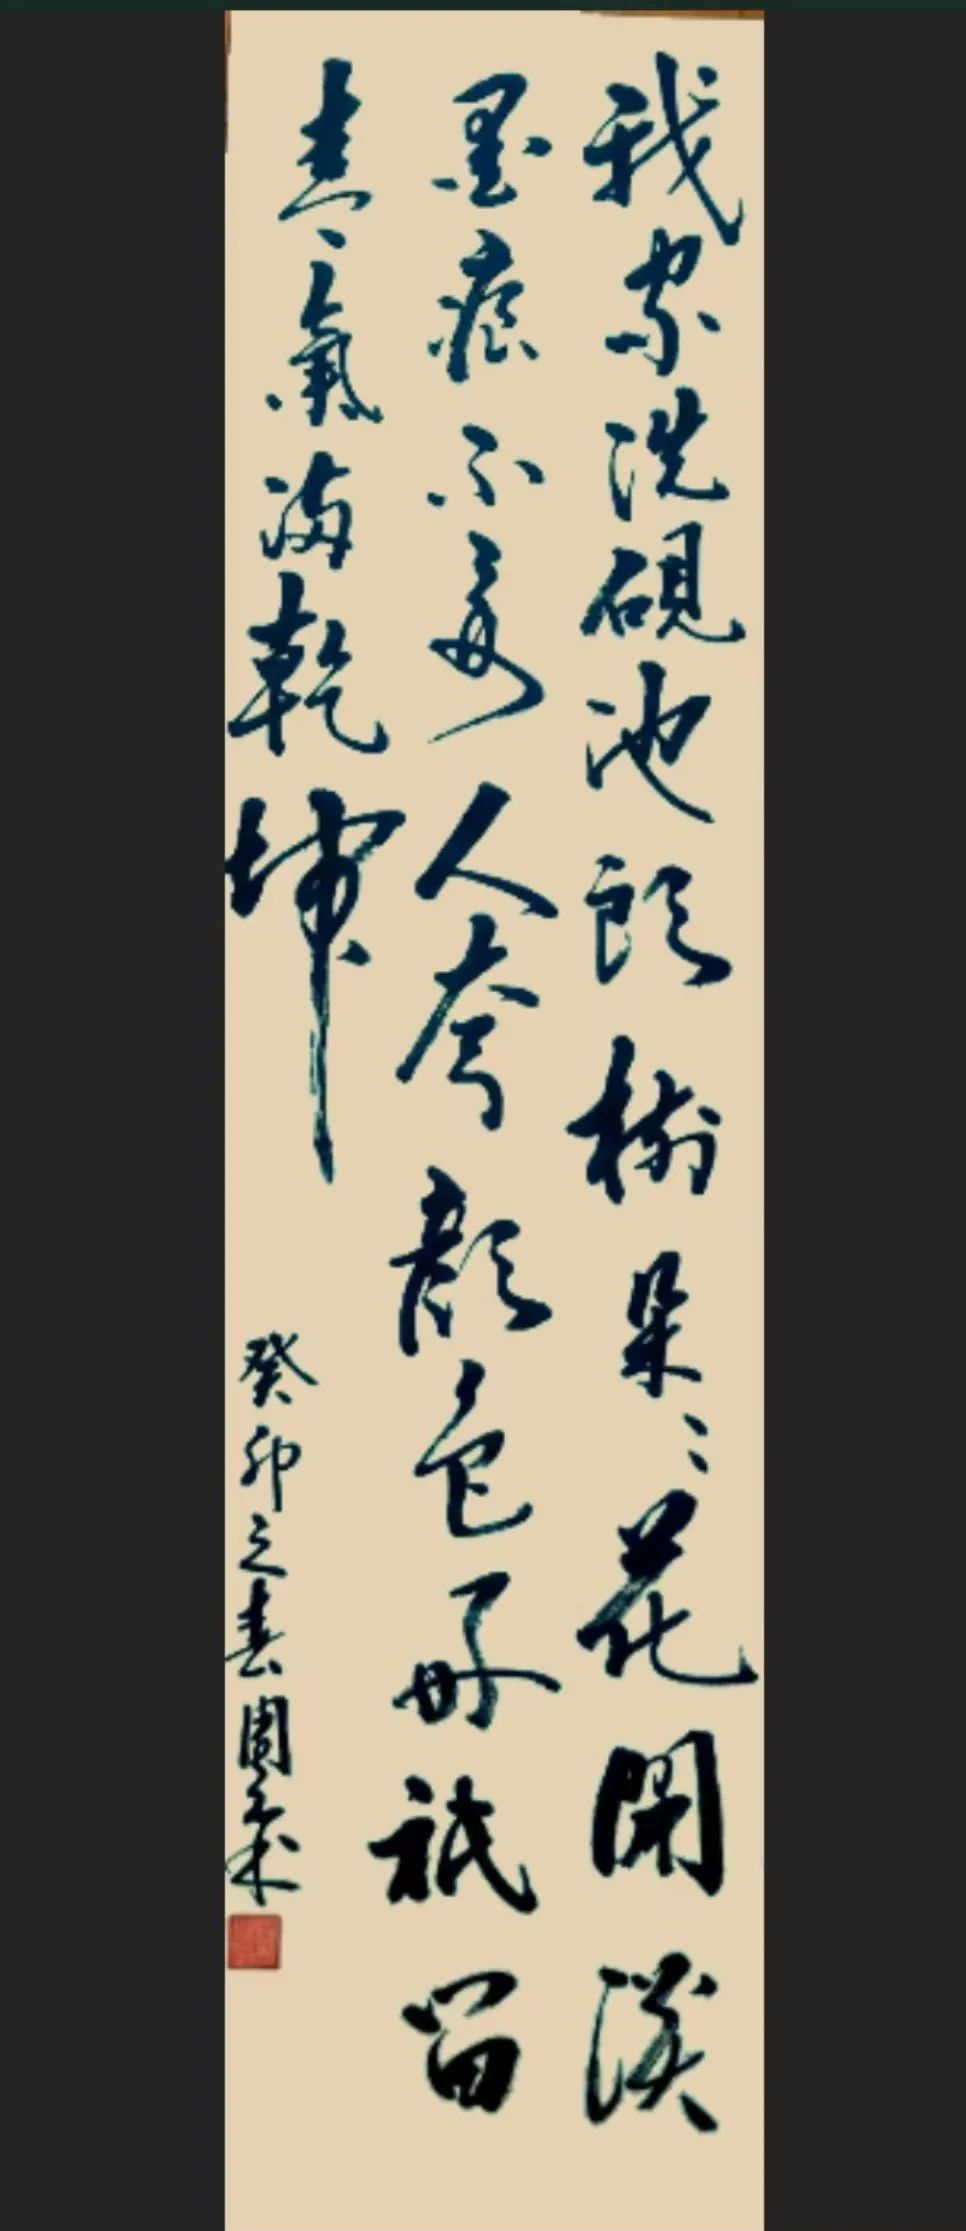 我家洗硯池頭樹朵〻花開淡
墨痕不要人夸顏色好祇留
清氣滿乾坤
癸卯之春周